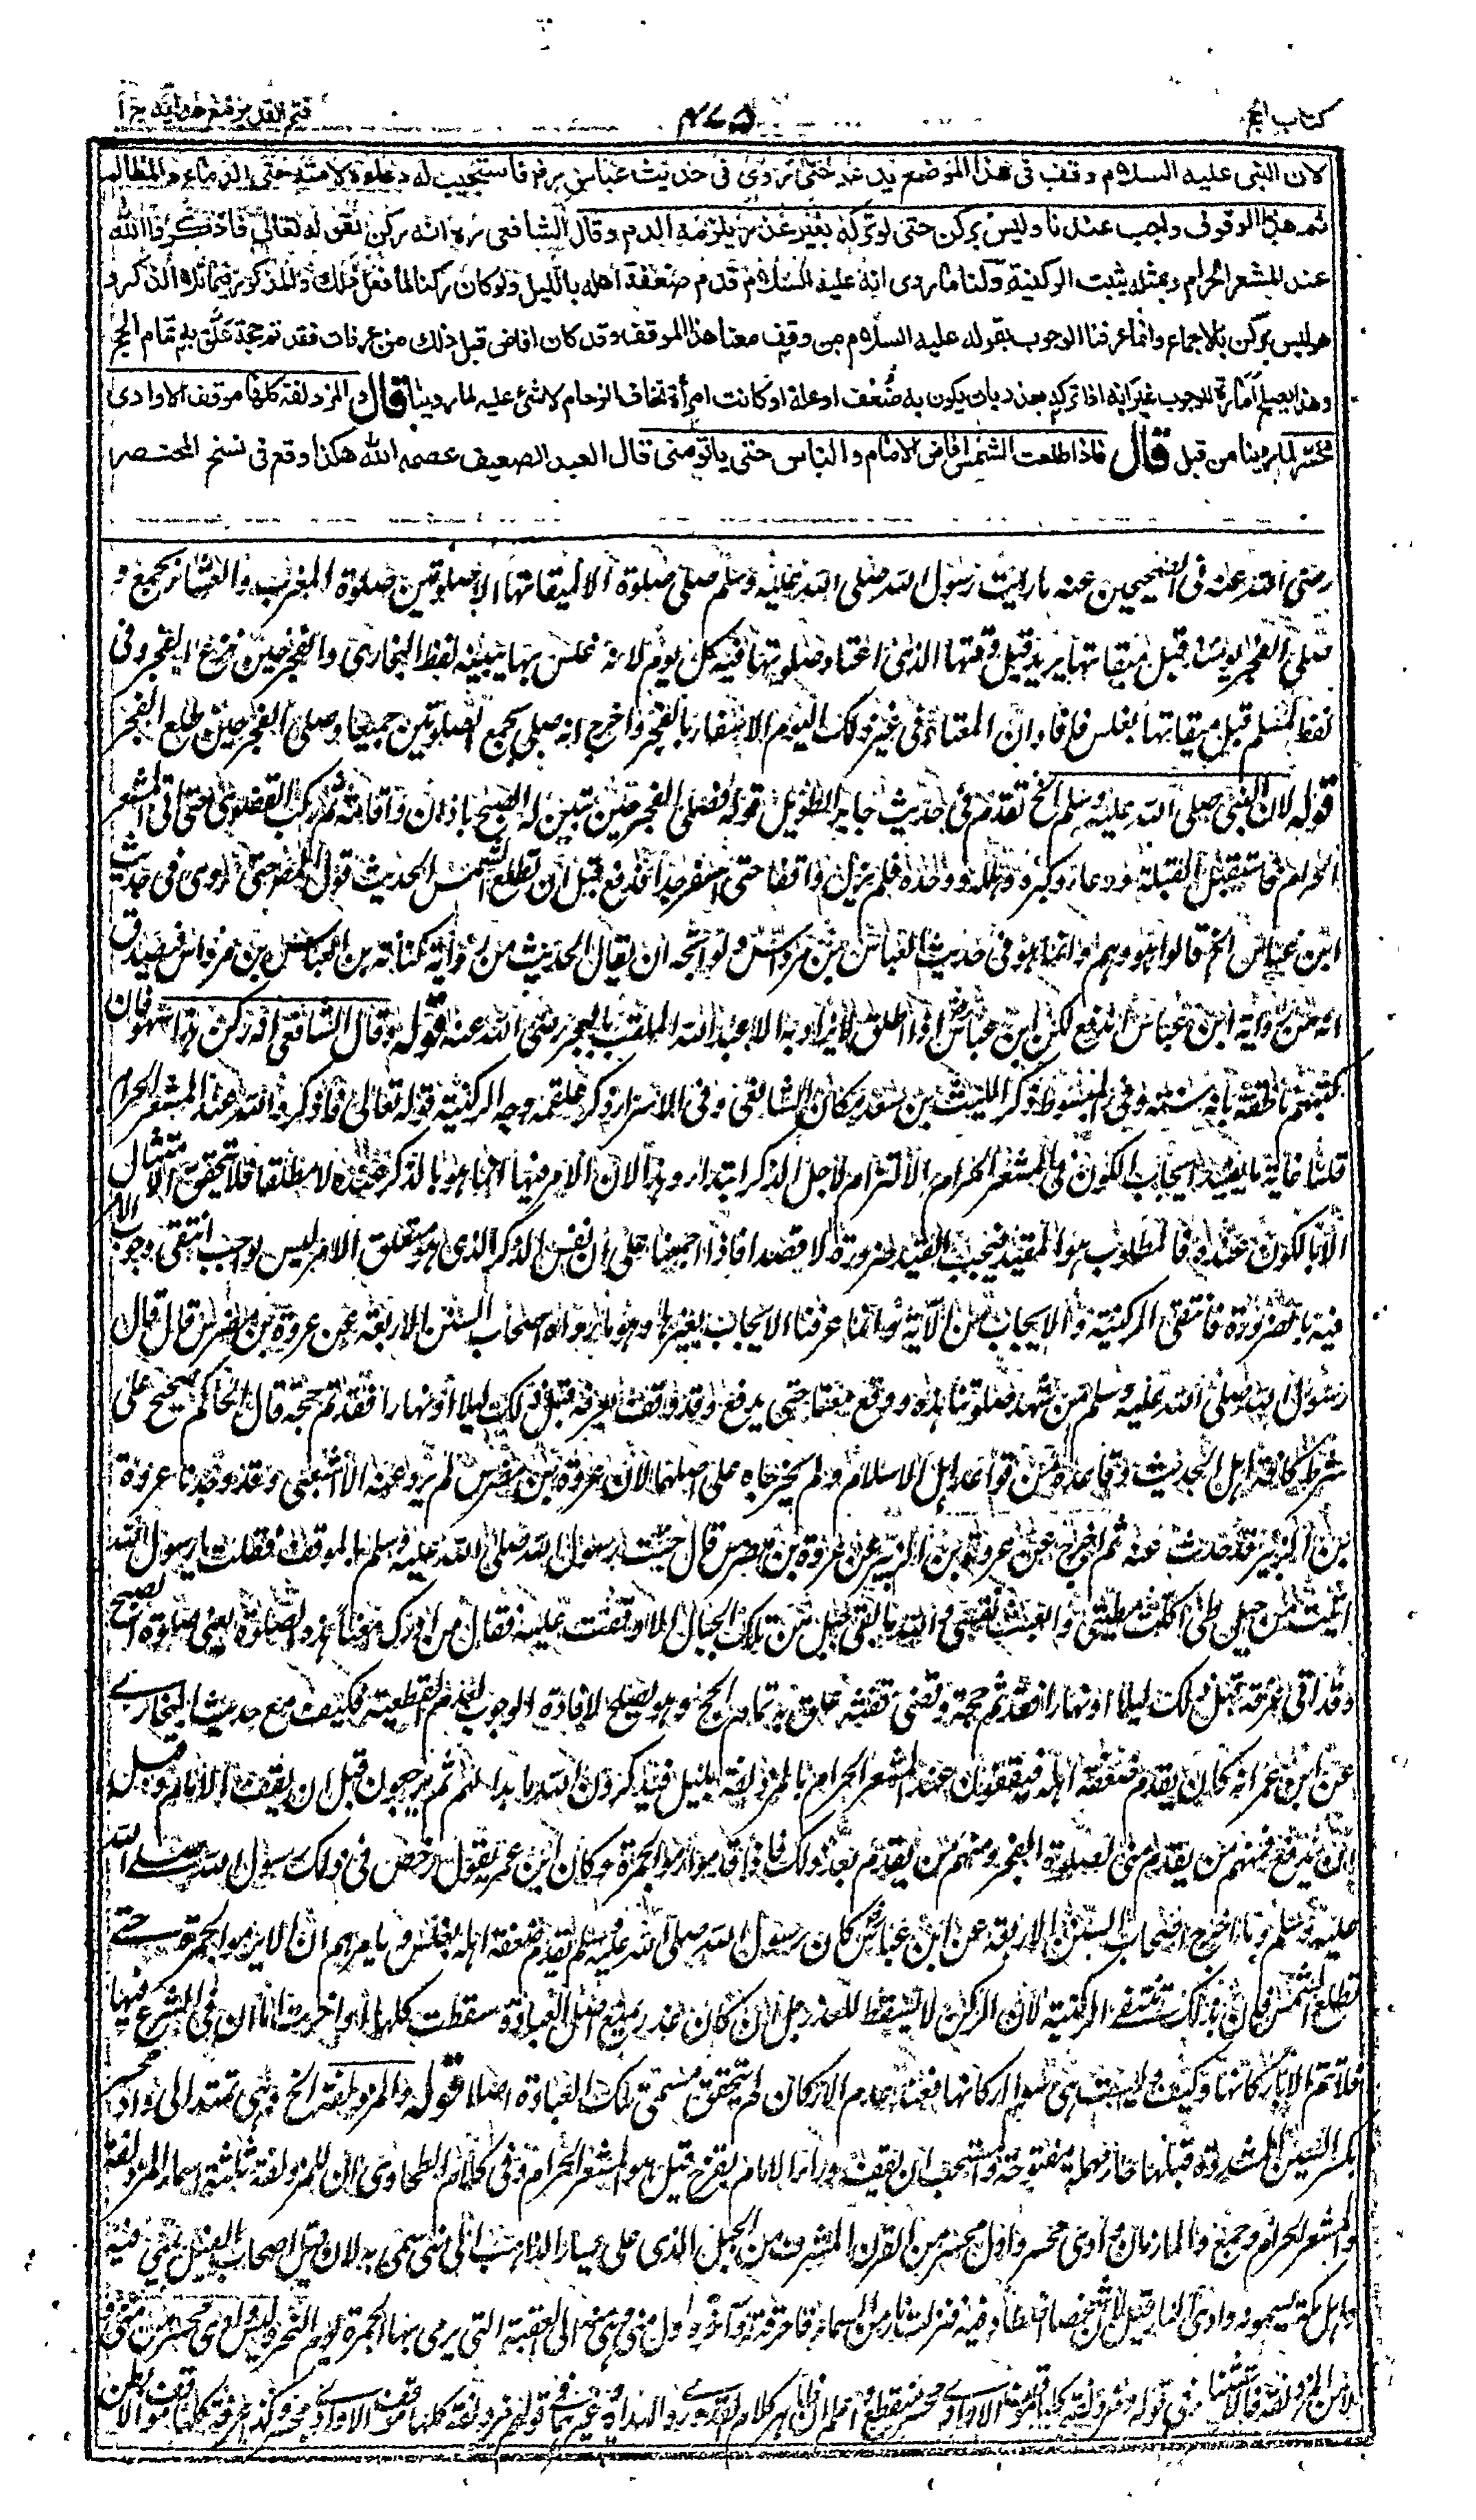 كتاب الحج
٤٧٥
فتح القدير مع هدايه ج ١
لان النبي عليه السلام وقف في هذا الموضع يدعو حتى روى في حديث عباس رض فاستجيب له دعاؤه لامته حتى الدماء والمظالم
ثم هذا الوقوف واجب عندنا وليس بركن حتى لو تركه بغير عذر يلزمه الدم وقال الشافعي ره انه ركن لقوله تعالى فاذكروا الله
عند المشعر الحرام وبمثله يثبت الركنية ولنا ما روى انه عليه السلام قدم ضعفة اهله بالليل ولو كان ركنا لما فعل ذلك والمذكور فيما تلاه الذكر و
هو ليس بركن بالاجماع وانما عرفنا الوجوب بقوله عليه السلام من وقف معنا هذا الموقف وقد كان افاض قبل ذلك من عرفات فقد تم حجه علق به تمام الحج
وهذا يصلح امارة للوجوب غير انه اذا تركه بعذر بان يكون به ضعف او علة او كانت امرأة تخاف الزحام لا شئ عليه لما روينا قال والمزدلفة كلها موقف الا وادي
محسر لما روينا من قبل قال فاذا طلعت الشمس افاض الامام والناس حتى ياتوا منى قال العبد الضعيف عصمه الله هكذا وقع في نسخ المختصر
رضي الله عنه في الصحيحين عنه ما رايت رسول الله صلى الله عليه وسلم صلى صلوة الا لميقاتها الا صلوتين صلوة المغرب والعشاء بجمع و
صلى الفجر يومئذ قبل ميقاتها يريد قبل وقتها الذي اعتاد صلوتها فيه كل يوم لانه غلس بها يبينه لفظ البخاري والفجر حين بزغ الفجر وفي
لفظ لمسلم قبل ميقاتها بغلس فافاد ان المعتاد في غير ذلك اليوم الاسفار بالفجر واخرج انه صلى بجمع الصلوتين جميعا وصلى الفجر حين طلع الفجر
قوله لان النبي صلى الله عليه وسلم الخ تقدم في حديث جابر الطويل قوله فصلى الفجر حين تبين له الصبح باذان واقامة ثم ركب القصوى حتى اتى المشعر
الحرام فاستقبل القبلة ودعا وكبر وهلله ووحده فلم يزل واقفا حتى اسفر جدا فدفع قبل ان تطلع الشمس الحديث قول المصـ حتى روى في حديث
ابن عباس الخ قالوا هو وهم وانما هو في حديث العباس بن مرداس ولو اتجه ان يقال الحديث من رواية كنانة بن العباس بن مرداس فيصدق
انه من رواية ابن عباس اندفع لكن ابن عباس اذا اطلق لا يراد به الا عبد الله الملقب بالبحر رضي الله عنه قوله وقال الشافعي انه ركن هذا سهو فان
كتبهم ناطقة بانه سنة وفي المبسوط ذكر الليث بن سعد مكان الشافعي وفي الاسرار ذكر علقمة وجه الركنية قوله تعالى فاذكروا الله عند المشعر الحرام
قلنا غاية ما يفيد ايجاب الكون في المشعر الحرام الالتزام لاجل الذكر ابتداء وهذا لان الامر فيها انما هو بالذكر عنده لا مطلقا فلا يتحقق الامتثال
الا بالكون عنده فالمطلوب هو المقيد فيجب القيد ضرورة لا قصدا فاذا اجمعنا على ان نفس الذكر الذي هو متعلق الامر ليس بواجب انتفى وجوب الامر
فيه بالضرورة فانتفى الركنية والايجاب من الآية وانما عرفنا الايجاب بغيرها وهو ما رواه اصحاب السنن الاربعة عن عروة بن مضرس قال قال
رسول الله صلى الله عليه وسلم من شهد صلوتنا هذه ووقف معنا حتى يدفع وقد وقف بعرفة قبل ذلك ليلا او نهارا فقد تم حجه قال الحاكم صحيح على
شرط كافة اهل الحديث وقاعدة من قواعد اهل الاسلام ولم يخرجاه على اصلهما لان عروة بن مضرس لم يرو عنه الا الشعبي وقد وجدنا عروة
بن الزبير قد حدث عنه ثم اخرج عن عروة بن الزبير عن عروة بن مضرس قال جئت رسول الله صلى الله عليه وسلم بالموقف فقلت يا رسول الله
اتيت من جبل طي اكللت مطيتي واتعبت نفسي والله ما بقي جبل من تلك الجبال الا وقفت عليه فقال من ادرك معنا هذه الصلوة يعني صلوة الصبح
وقد اتى عرفة قبل ذلك ليلا او نهارا فقد تم حجه وقضى تفثه علق به تمام الحج وهو يصلح لافادة الوجوب لعدم القطعية فكيف مع حديث البخاري
عن ابن عمر انه كان يقدم ضعفة اهله فيقفون عند المشعر الحرام بالمزدلفة بليل فيذكرون الله ما بدا لهم ثم يرجعون قبل ان يقف الامام وقبل
ان يدفع فمنهم من يقدم منى لصلوة الفجر ومنهم من يقدم بعد ذلك فاذا قدموا رموا الجمرة وكان ابن عمر يقول رخص في ذلك رسول الله صلى الله
عليه وسلم وما اخرج اصحاب السنن الاربعة عن ابن عباس كان رسول الله صلى الله عليه وسلم يقدم ضعفة اهله بغلس ويامرهم ان لا يرموا الجمرة حتى
تطلع الشمس فان بذلك تنتفي الركنية لان الركن لا يسقط للعذر بل ان كان عذر يمنع اصل العبادة سقطت كلها او اخرت اما ان في الشرع فيها
فلا تتم الا باركانها وكيف وليست هي سوى اركانها فعند عدم الاركان لم يتحقق مسمى تلك العبادة اصلا قوله والمزدلفة الخ وهي تمتد الى وادي محسر
بكسر السين المشددة قبلها حاء مهملة مفتوحة والمستحب ان يقف وراء الامام بقزح قيل هو المشعر الحرام وفي كلام الطحاوي ان للمزدلفة ثلثة اسماء المزدلفة
والمشعر الحرام وجمع والمازمان وادى محسر واول محسر من القرن المشرف من الجبل الذي على يسار الذاهب الى منى سمى به لان فيل اصحاب الفيل اعيى فيه
واهل مكة يسمونه وادى النار قيل لان شخصا اصطاد فيه فنزلت نار من السماء فاحرقته وآخره اول منى وهي منه الى العقبة التي يرمى بها الجمرة يوم النحر وليس وادى محسر من منى
ولا من المزدلفة فالاستثناء في قوله ومزدلفة كلها موقف الا وادي محسر منقطع واعلم ان ظاهر كلام القدوري والهداية وغيرهما في قولهم مزدلفة كلها موقف الا وادي محسر وكذا عرفة كلها موقف الا بطن